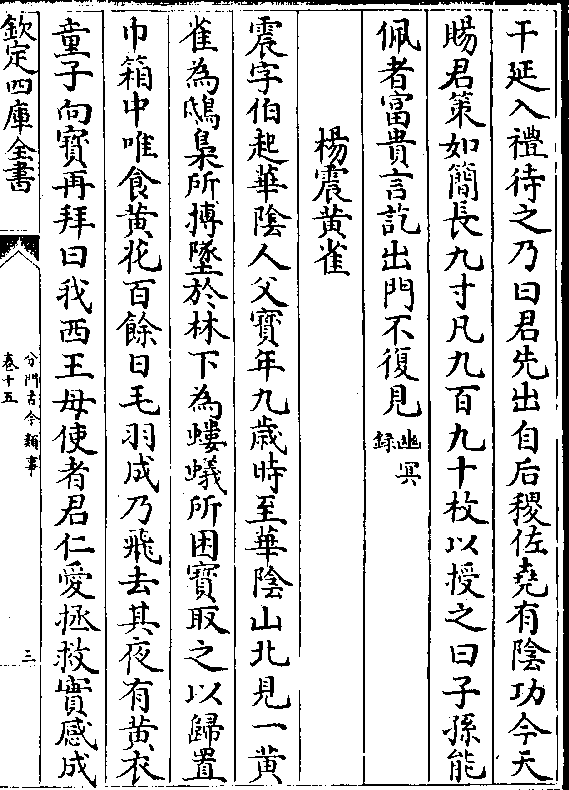 干延入禮待之乃曰君先出自后稷佐堯有陰功今天
賜君策如簡長九寸凡九百九十枚以授之曰子孫能
佩者富貴言訖出門不復見幽冥錄
楊震黃雀
震字伯起華陰人父寶年九歲時至華陰山北見一黃
雀為鴟梟所搏墜於林下為螻蟻所困寶取之以歸置
巾箱中唯食黃花百餘日毛羽成乃飛去其夜有黃衣
童子向寶再拜曰我西王母使者君仁愛拯救實感成
欽定四庫全書
分門古今類事
卷十五
三